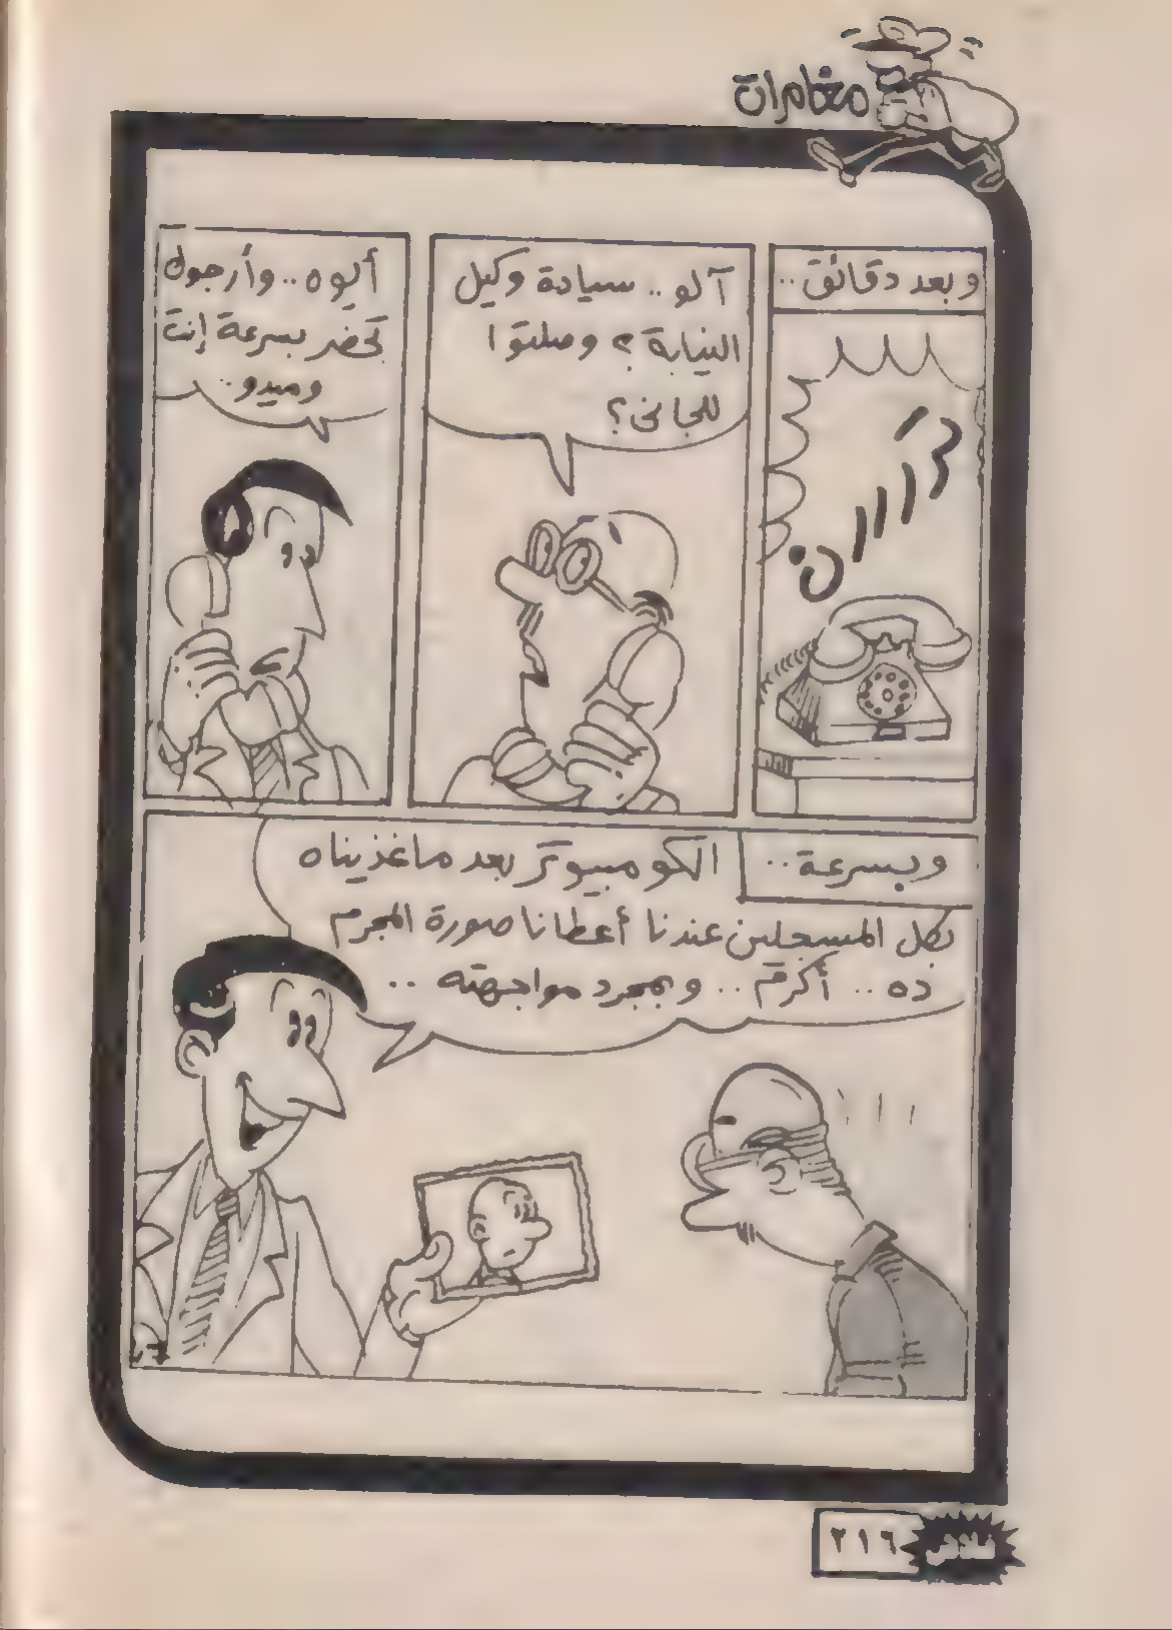 مغامرات
وبعد دقائق..
ترررررن
آلو.. سيادة وكيل
النيابة؟ وصلتوا
للجانى؟
أيوه.. وأرجوك
تحضر بسرعة إنت
وميدو..
وبسرعة..
الكومبيوتر بعد ماغذيناه
بكل المسجلين عندنا أعطانا صورة المجرم
ده.. أكرم.. وبمجرد مواجهته..
فلاش
٢١٦